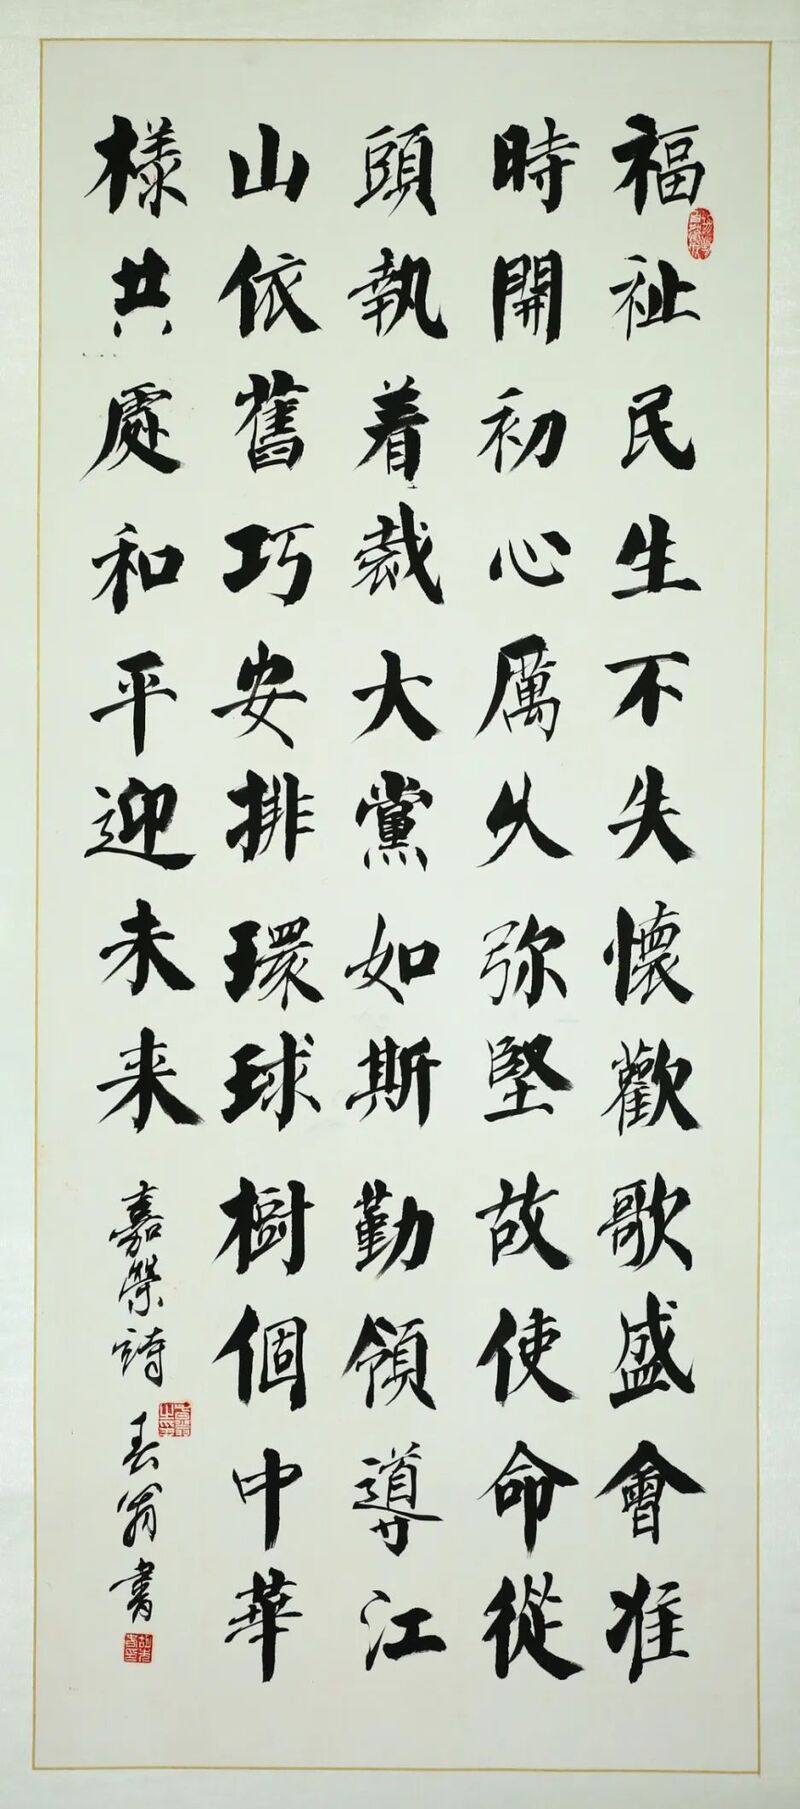 福祉民生不失懷歡歌盛會准
時開初心厲久弥堅故使命從
頭執着裁大黨如斯勤領導江
山依舊巧安排環球樹個中華
樣共處和平迎未来
嘉榮詩
春翁書